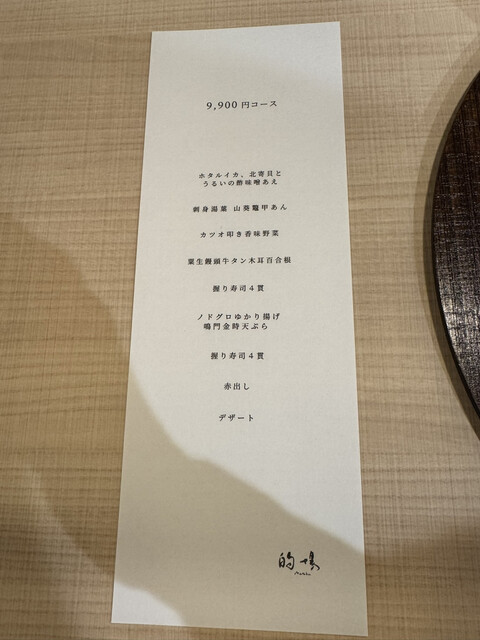 9,900円コース
ホタルイカ、北寄貝と
うるいの酢味噌あえ
刺身湯葉 山葵鼈甲あん
カツオ叩き香味野菜
粟生饅頭牛タン木耳百合根
握り寿司4貫
ノドグロゆかり揚げ
鳴門金時天ぷら
握り寿司4貫
赤出し
デザート
的場